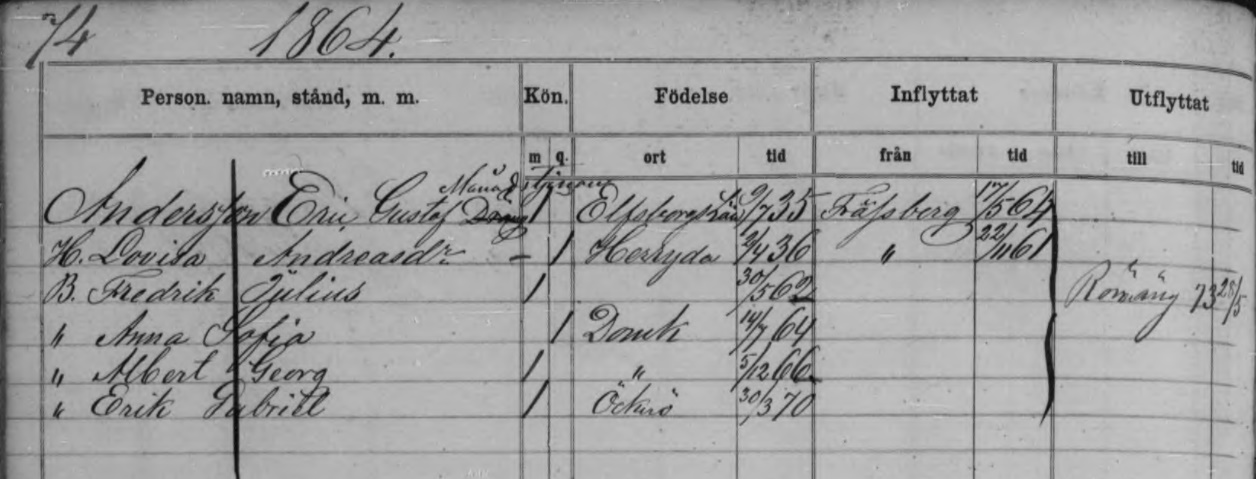 74 1864.
Person. namn, stånd, m. m. Kön. Födelse Inflyttat Utflyttat
m q. ort tid från tid till tid
Andersson Eric, Gustaf Elfsborgs Län 9/7 35 Fräfsberg 17/5 64
H. Lovisa Andreasdr 1 Herryda 2/4 36 " 22/11 61
B. Fredrik Julius 1 30/5 62 73 28/5
" Anna Sofia 1 14/7 64
" Albert Georg 1 " 5/12 66
" Erik Gabriel 1 Öckerö 30/3 70